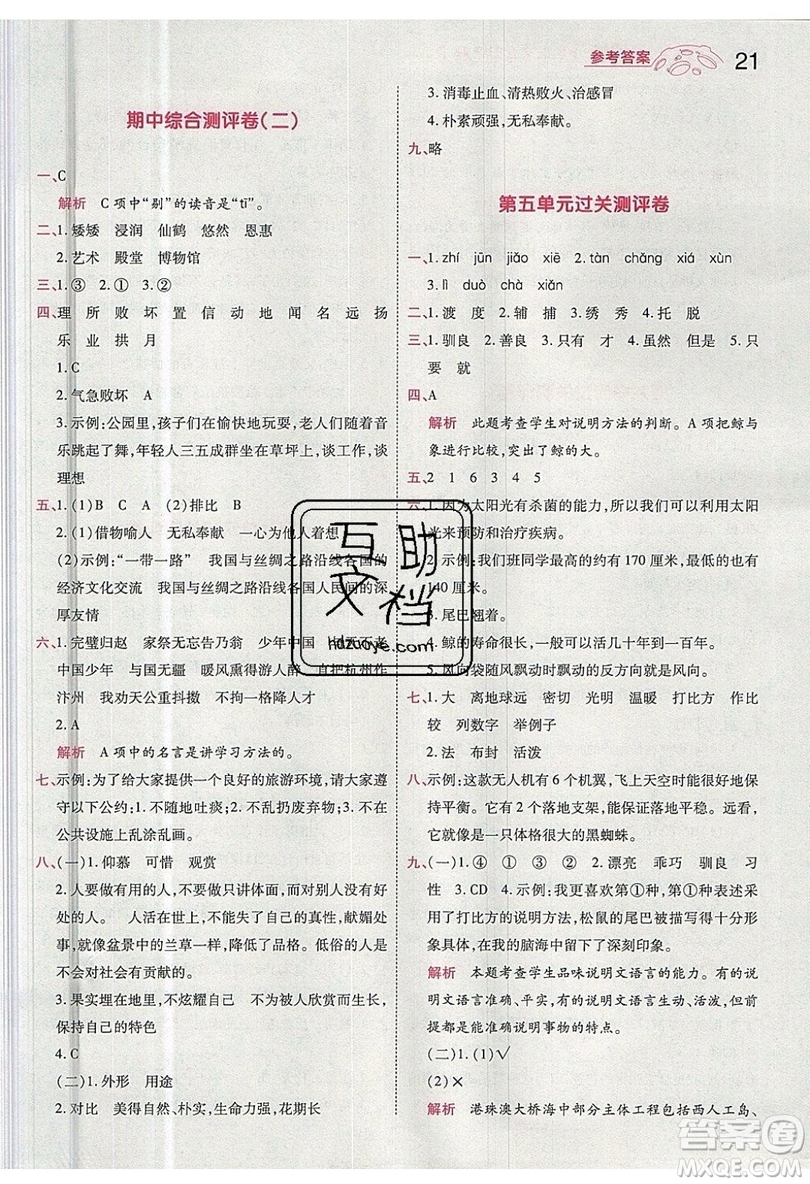 参考答案 21
期中综合测评卷(二)
一、C
解析 C 项中“剔”的读音是“tī”。
二、1.矮矮 浸润 仙鹤 悠然 恩惠
2.艺术 殿堂 博物馆
三、1.③ 2.① 3.②
四、理 所 败 坏 置 信 动 地 闻 名 远 扬
乐 业 拱 月
1.C
2.气急败坏 A
3.示例:公园里,孩子们在愉快地玩耍,老人们随着音
乐跳起了舞,年轻人三五成群坐在草坪上,谈工作,谈
理想
五、1.(1)B C A (2)排比 B
2.(1)借物喻人 无私奉献 一心为他人着想
(2)示例:“一带一路” 我国与丝绸之路沿线各国的
经济文化交流 我国与丝绸之路沿线各国人民间的深
厚友情
六、1.完璧归赵 家祭无忘告乃翁 少年中国 与天不老
中国少年 与国无疆 暖风熏得游人醉 直把杭州作
汴州 我劝天公重抖擞 不拘一格降人才
2.A
解析 A 项中的名言是讲学习方法的。
七、示例:为了给大家提供一个良好的旅游环境,请大家遵
守以下公约:1.不随地吐痰;2.不乱扔废弃物;3.不在
公共设施上乱涂乱画。
八、(一)1.仰慕 可惜 观赏
2.人要做有用的人,不要做只讲体面,而对别人没有好
处的人。 人活在世上,不能失去自己的真性,献媚世
事,就像盆景中的兰草一样,降低了品格。后句:人要
为人类社会有贡献的。
3.果实埋在地里,不炫耀自己 不为被人欣赏而生长,
保持自己的特色
4.C
(二)1.外形 用途
2.对比 美得自然朴实,生命力强,花期长
3.消毒止血、清热败火、治感冒
4.朴素顽强,无私奉献。
九、略
第五单元过关测评卷
一、1.zhí jūn jiǎo xiē 2.tàn chǎng xiá xùn
3.lì duò chà xiāng
二、1.渡 度 2.辅 捕 3.绣 秀 4.托 脱
三、1.驯良 2.善良 3.只有 才 4.虽然 但是 5.只
要 就
四、A
解析 此题考查学生对说明方法的判断。A 项把鲸与
象进行比较,突出了鲸的大。
五、2 1 6 3 4 5
六、1.因为太阳光有杀菌的能力,所以我们可以利用太阳
光来预防和治疗疾病。
2.示例:我们班同学最高的有约 170 厘米,最矮的有约
140 厘米。
3.尾巴翘着。
4.鲸的寿命很长,一般可以活几十年到一百年。
5.风向袋随风飘动时飘动的反方向就是风向。
七、1.大 离地球远 密切 光明 温暖 打比方 作比
较 列数字 举例子
2.法 布封 活泼
八、示例:这款无人机有 6 个机翼,飞上天空时能很好地保
持平衡。它有 2 个落地支架,能确保落地平稳。远看,
它就像是一只体格庞大的黑蜘蛛。
九、(一)1.④ ① ③ ② 2.漂亮 乖巧 驯良 习
性 3.CD 4.示例:我喜欢第①种,第①种描写运
用了打比方的说明方法,松鼠的尾巴写得十分形
象,在我的脑海中留下了深刻印象。
解析 本题考查学生品味说明文语言的能力。有的说
明文语言准确、平实,有的生动、活泼,但无论哪种,
都能很好地说明事物的特点。
(二)1.(1)√
(2)×
解析 港珠澳大桥海中部分主体工程包括西人工岛、
互助
文档
hdzuoye.com
答案圈
MXQE.COM